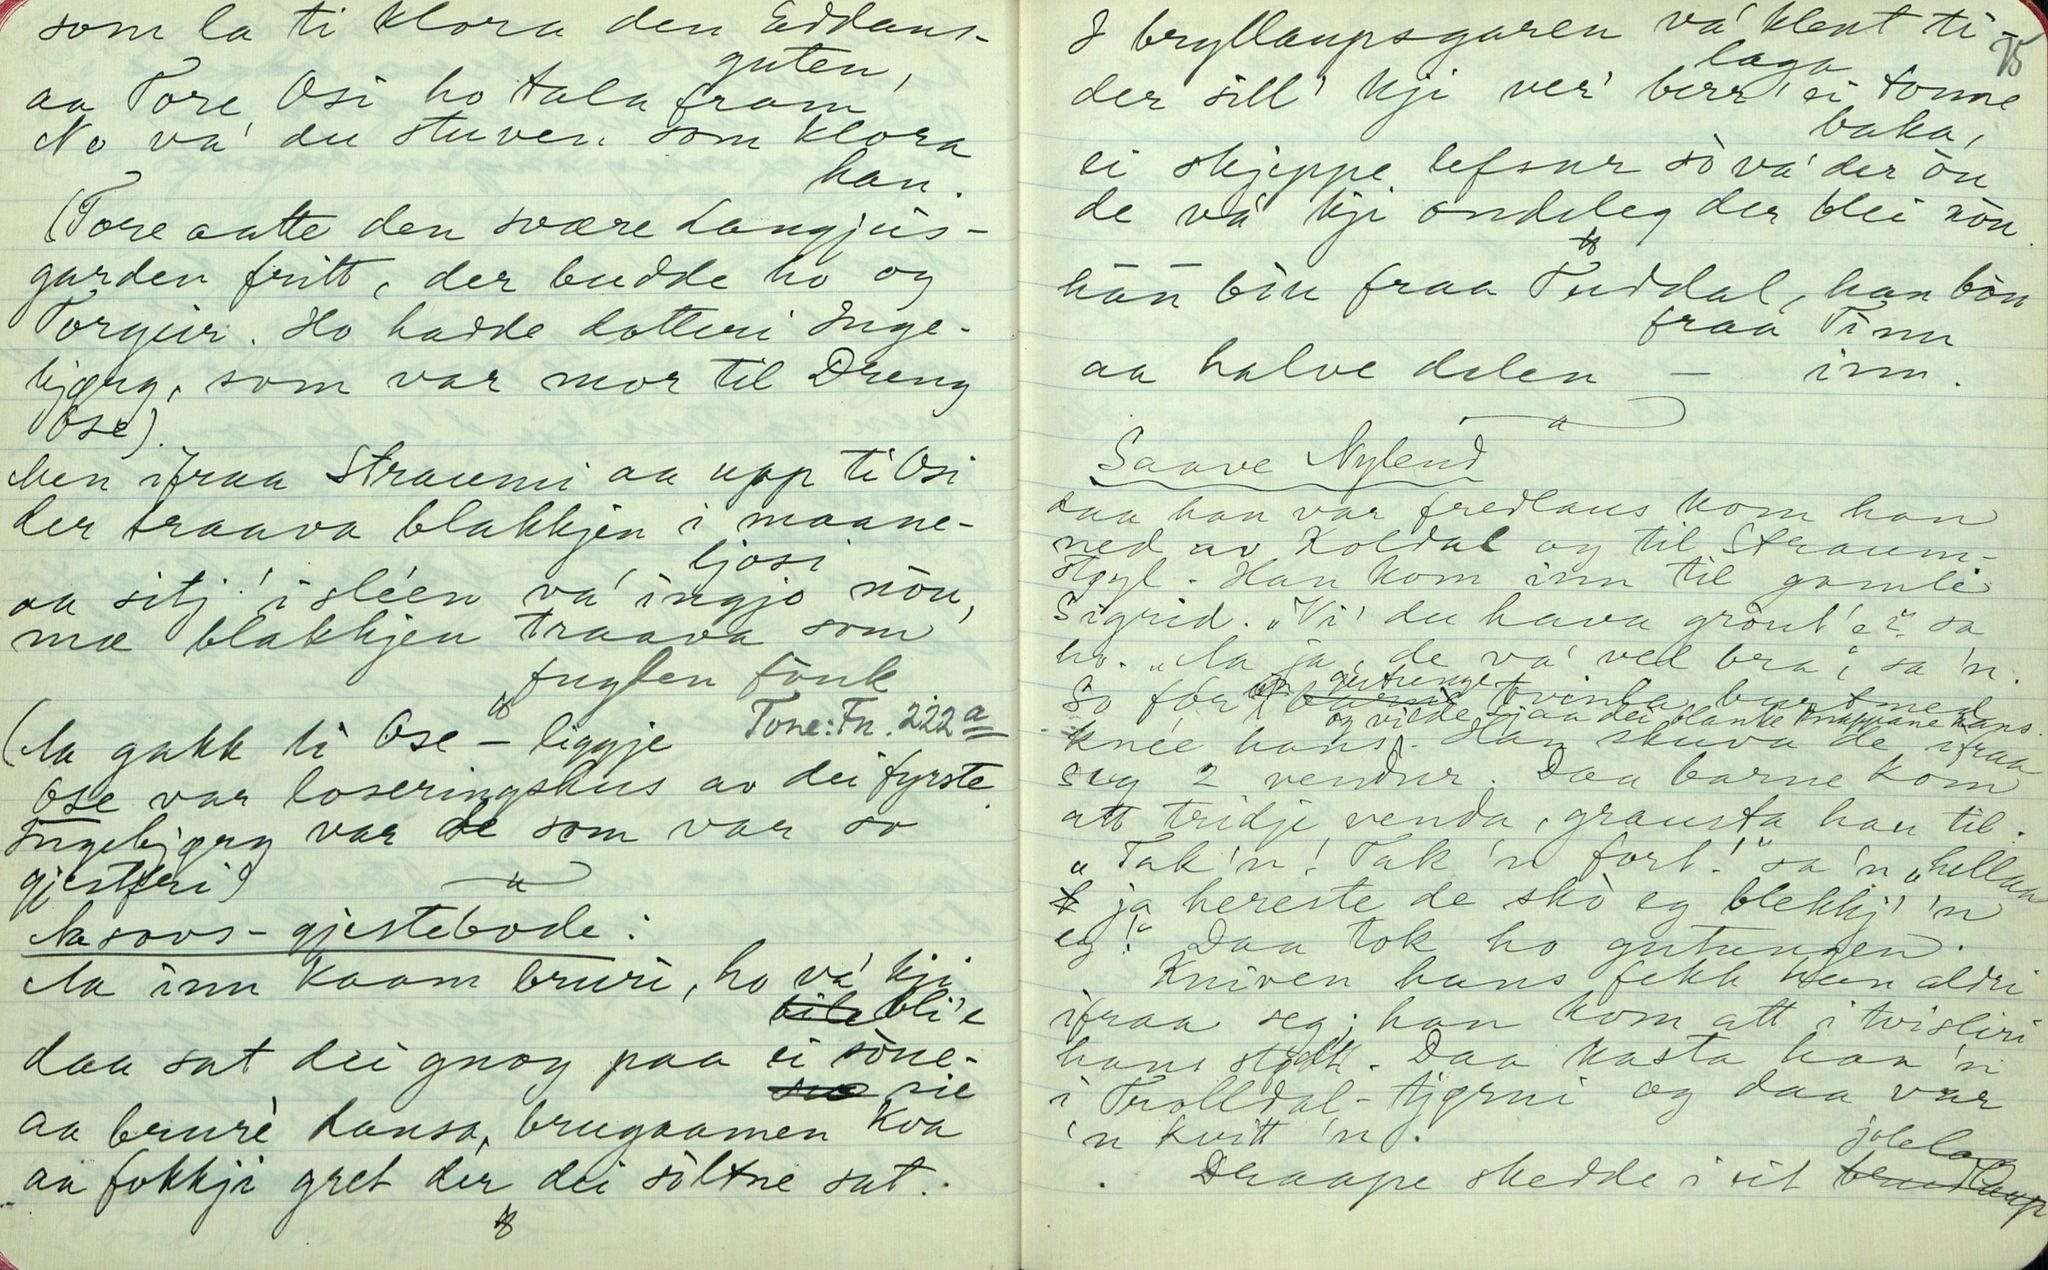 som la ti klora den Eddans-
guten,
aa Tore Osi ho tala fram
No va' du stuven som klora
han.
(Tore aatte den svære Langjüs-
garden fritt, der budde ho og
Torgeir. Ho hadde dotteri Inge-
bjørg, som var mor til Dreng
Ose).
Men ifraa Straumi aa upp ti Osi
der traava blakkjen i maane-
ljosi
aa sitj' i sléen va' ingjo nòn,
mæ blakkjen traava som
fuglen fònk
(Aa gakk ti Ose – liggje Tone: Fn. 222a
Ose var loseringshus av dei fyrste.
Ingebjørg var de som var so
gjestfri)
Aasovs-gjestebode:
Aa inn kaam bruri, ho va' kji
bli'e
daa sat dei gnog paa ei sòne-
sie
aa brurè dansa, brugaamen kva
aa fokkji gret dér dei sòltne sat.
75
I bryllaupsgaren va' klent ti-
laga
der sill' kji ver' berr' ei tonne
baka,
ei skjeppe lefsur sò va' der òn
de va' kji ondeleg der blei nòn.
hån bòn fraa Tuddal, han bòn
fraa Tinn
aa halve dalen – inn.
Saave Nylend
daa han var fredlaus kom han
ned av Roldal og til Straum-
støyl. Han kom inn til gamle
Sigrid. "Vi' du hava gròut'e?" sa
ho. "Aa ja, de va' vel bra", sa 'n.
So for gutunge kvinla burtmed
og vilde sjaa dei blanke knappane hans.
knée hans. Han skuva de ifraa
seg 2 vendur. Daa barne kom
att tridje venda, grausta han til.
"Tak 'n! Tak 'n fort!" sa 'n, "hellaa
ja hereste de skò eg blekkj' 'n
eg!" Daa tok ho gutungen.
Kniven hans fekk han aldri
ifraa seg; han kom att i tvisliri
hans støtt. Daa kasta han 'n
i Trolldal-tjørni og daa var
'n kvitt 'n.
Draape skedde i eit